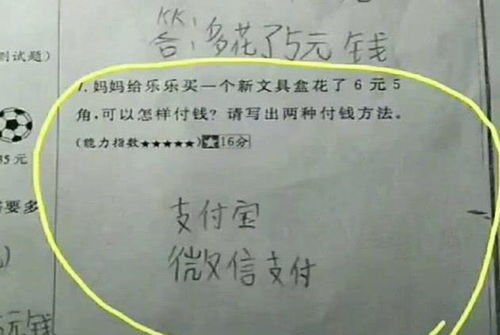 答:多花了5元钱
测试题)
7.妈妈给乐乐买一个新文具盒花了6元5
角,可以怎样付钱?请写出两种付钱方法。
(能力指数★★★★★)★16分
35元
需要多
支付宝
微信支付
元钱